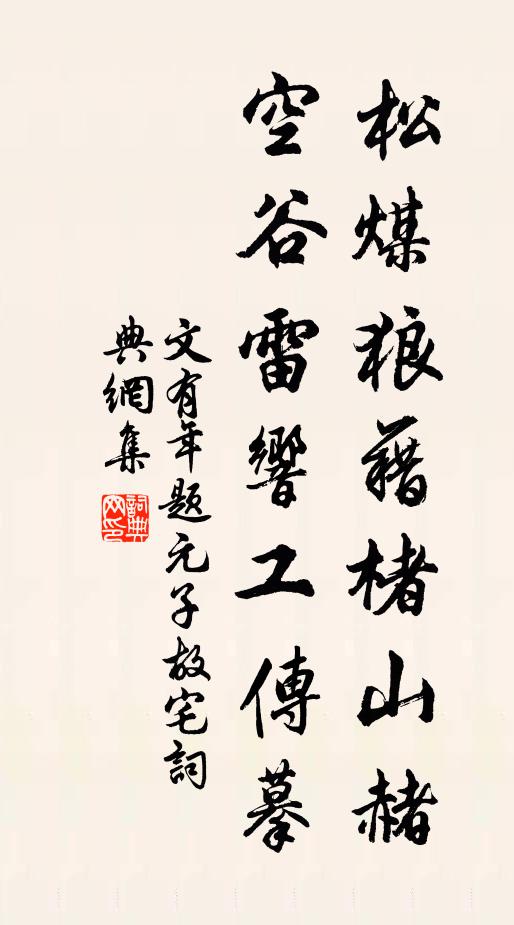 松煤狼藉楮山赭
空谷雷響工傳摹
文有年題元子故宅詞
典網集
詞典網印